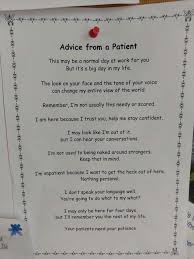 Advice from a Patient
This may be a normal day at work for you
But it's a big day in my life.
The look on your face and the tone of your voice
can change my entire view of the world
Remember, I'm not usually this needy or scared.
I am here because I trust you, help me stay confident.
I may look like I'm out of it.
but I can hear your conversations.
I'm not used to being naked around strangers.
Keep that in mind.
I'm impatient because I want to get the heck out of here.
Nothing personal.
I don't speak your language well.
You're going to do what to my what?
I may only be here for four days
but I'll remember you the rest of my life.
Your patients need your patience.